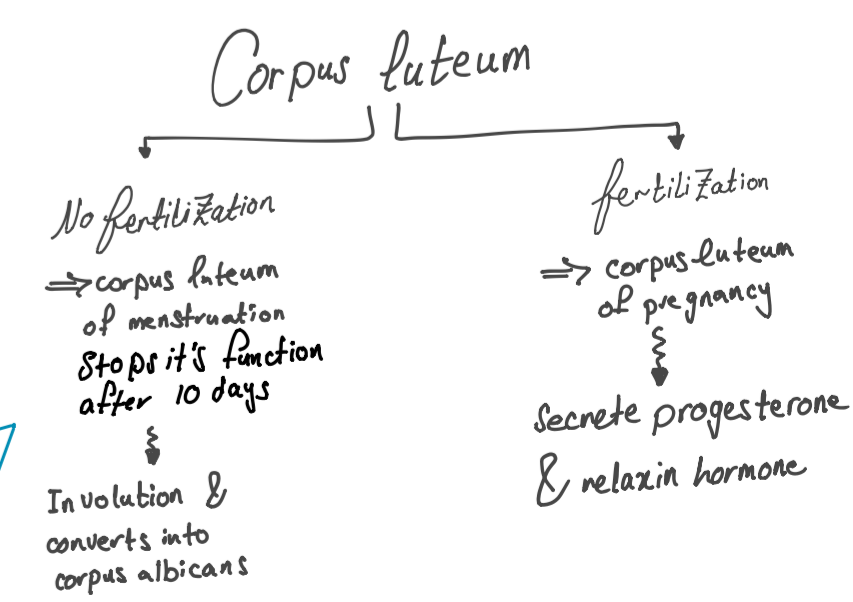 Corpus luteum
No fertilization
⇒ corpus luteum
of menstruation
Stops it's function
after 10 days
Involution &
converts into
corpus albicans
fertilization
⇒ corpus luteum
of pregnancy
Secrete progesterone
& relaxin hormone